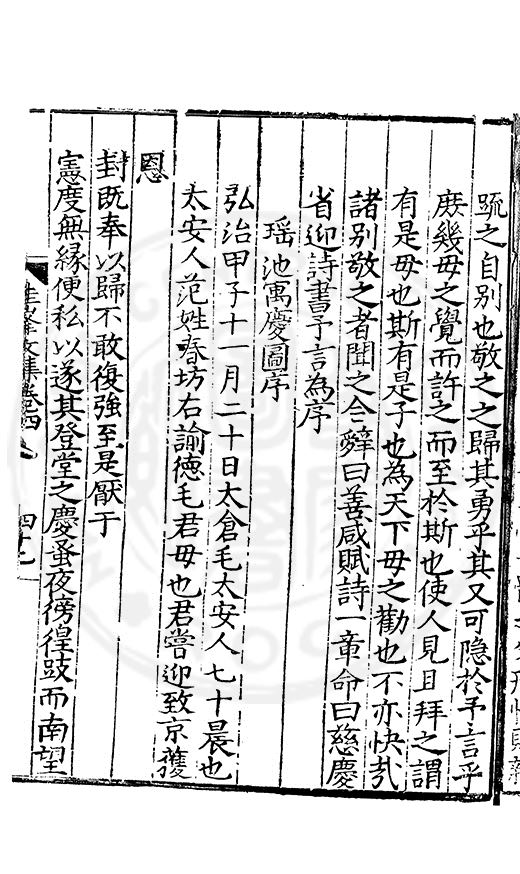 疏之自別也敬之之歸其勇乎其又可隐於予言乎
庻幾毋之覺而許之而至於斯也使人見且拜之謂
有是毋也斯有是子也為天下毋之勸也不亦快㢤
諸別敬之者聞之合辭曰善咸賦詩一章命曰慈慶
省迎詩書予言為序
瑶池寓慶圖序
弘治甲子十一月二十日太倉毛太安人七十晨也
太安人范姓春坊右諭德毛君毋也君嘗迎致京獲
恩
封旣奉以歸不敢復強至是厭于
憲度無緣便私以遂其登堂之慶蚤夜徬徨跂而南望